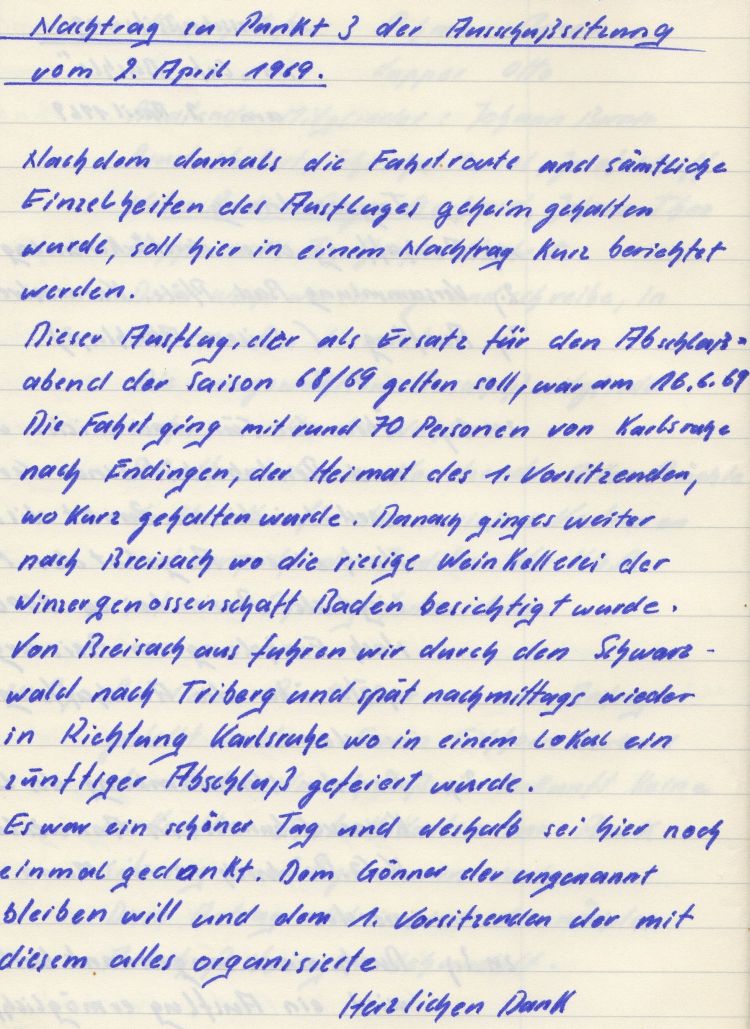 Nachtrag zu Punkt 3 der Ausschußsitzung
vom 2. April 1969.
Nachdem damals die Fahrtroute und sämtliche
Einzelheiten des Ausfluges geheim gehalten
wurde, soll hier in einem Nachtrag kurz berichtet
werden.
Dieser Ausflug, der als Ersatz für den Abschluß-
abend der Saison 68/69 gelten soll, war am 16.6.69
Die Fahrt ging mit rund 70 Personen von Karlsruhe
nach Endingen, der Heimat des 1. Vorsitzenden,
wo kurz gehalten wurde. Danach ging es weiter
nach Breisach wo die riesige Weinkellerei der
Winzergenossenschaft Baden besichtigt wurde.
Von Breisach aus fuhren wir durch den Schwarz-
wald nach Triberg und spät nachmittags wieder
in Richtung Karlsruhe wo in einem Lokal ein
zünftiger Abschluß gefeiert wurde.
Es war ein schöner Tag und deshalb sei hier noch
einmal gedankt. Dem Gönner der ungenannt
bleiben will und dem 1. Vorsitzenden der mit
diesem alles organisierte
Herzlichen Dank